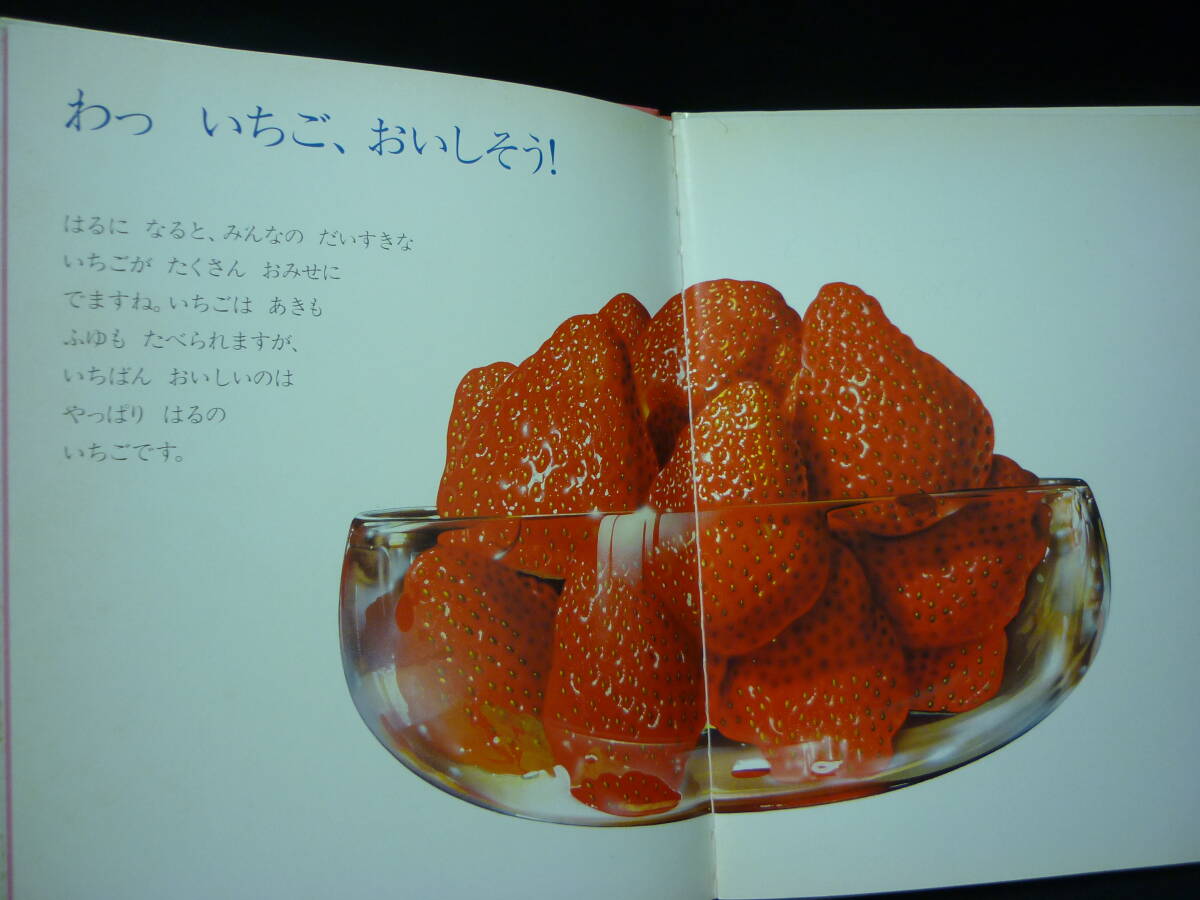 わっ　いちご、おいしそう!
はるに　なると、みんなの　だいすきな
いちごが　たくさん　おみせに
でますね。いちごは　あきも
ふゆも　たべられますが、
いちばん　おいしいのは
やっぱり　はるの
いちごです。